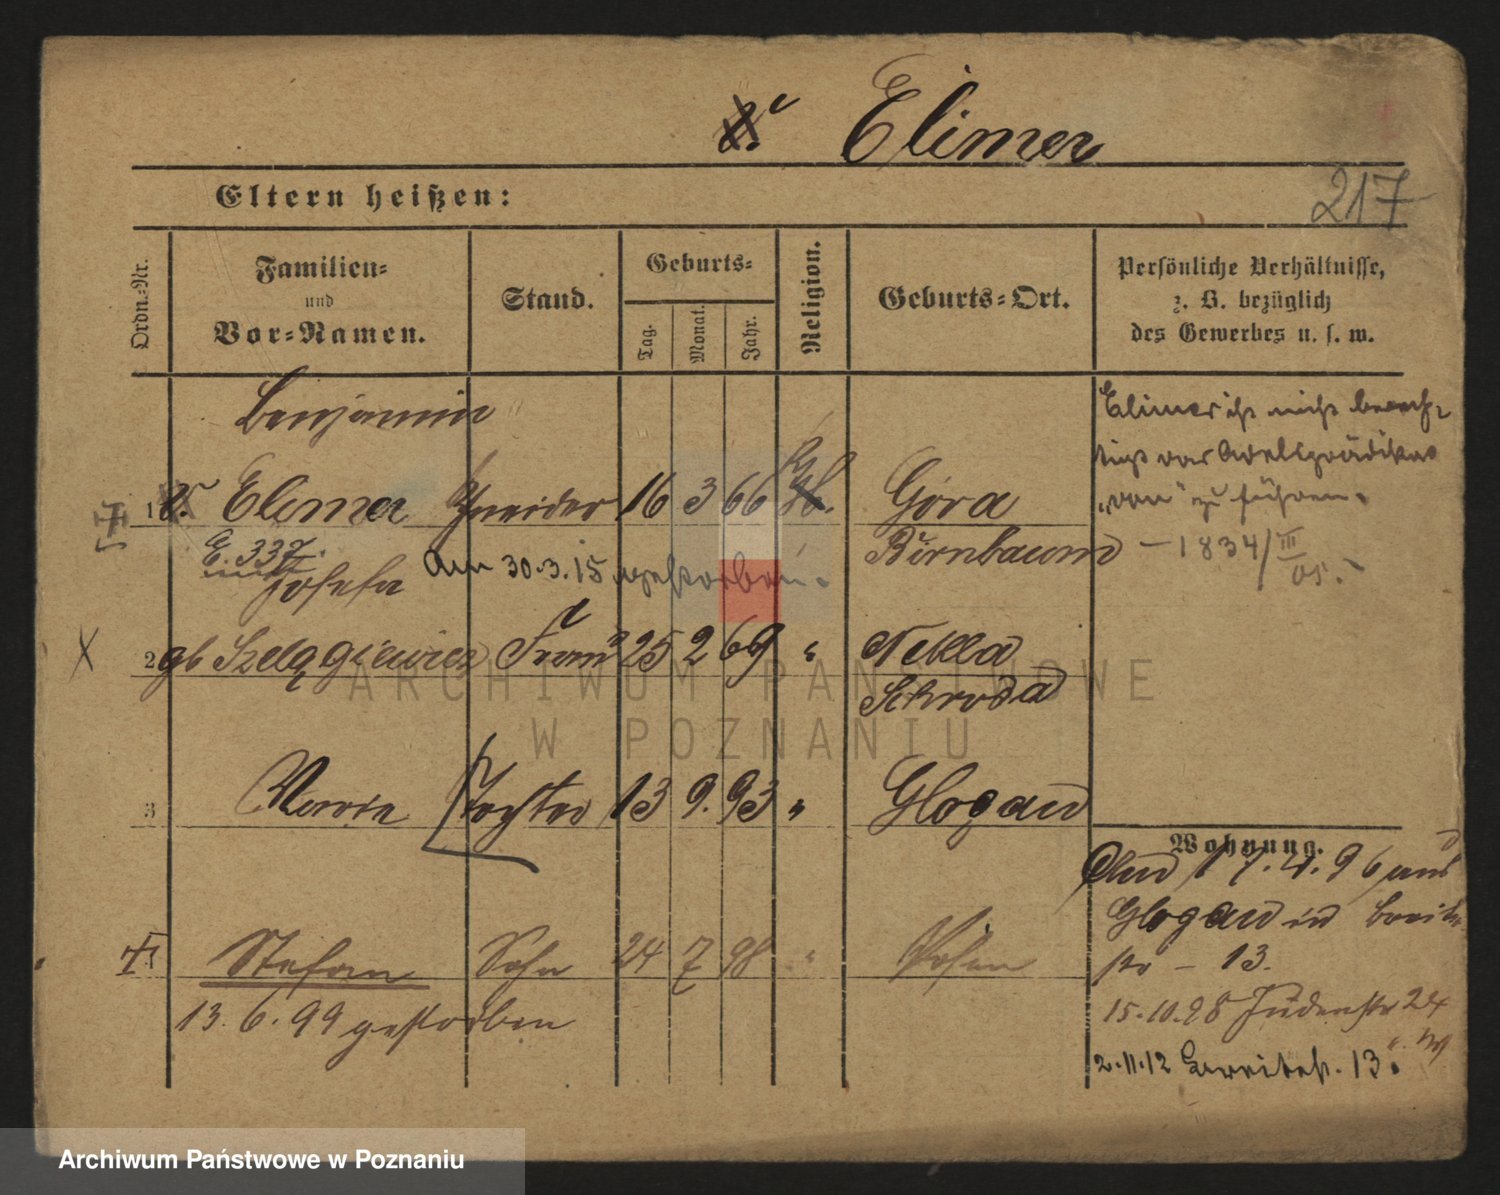 v. Elimer
217
Eltern heißen:
Ordn.-Nr.
Familien-
und
Vor-Namen.
Stand.
Geburts-
Tag.
Monat.
Jahr.
Religion.
Geburts-Ort.
Persönliche Verhältnisse,
z. B. bezüglich
des Gewerbes u. s. w.
Benjamin
1 v. Elimer Schneider 16 3 66 Góra
Birnbaum
E. 337.
Josefa Am 30.3.15 gestorben.
2 gb Szelągiewicz Frau 25 2 69 " Nekla
Schroda
3 Marie Tochter 13 9. 93 " Glogau
Stefan Sohn 24 7 98 " Posen
13. 6. 99 gestorben
Elimer ist nicht berech-
tigt das Adelsprädikat
„von" zu führen.
— 1834/III
05.
Wohnung.
17. 4. 96 aus
Glogau in Breite
str — 13.
15.10.98 Judenstr 24
2.11.12 Breitestr. 13.
ARCHIWUM PAŃSTWOWE
W POZNANIU
Archiwum Państwowe w Poznaniu